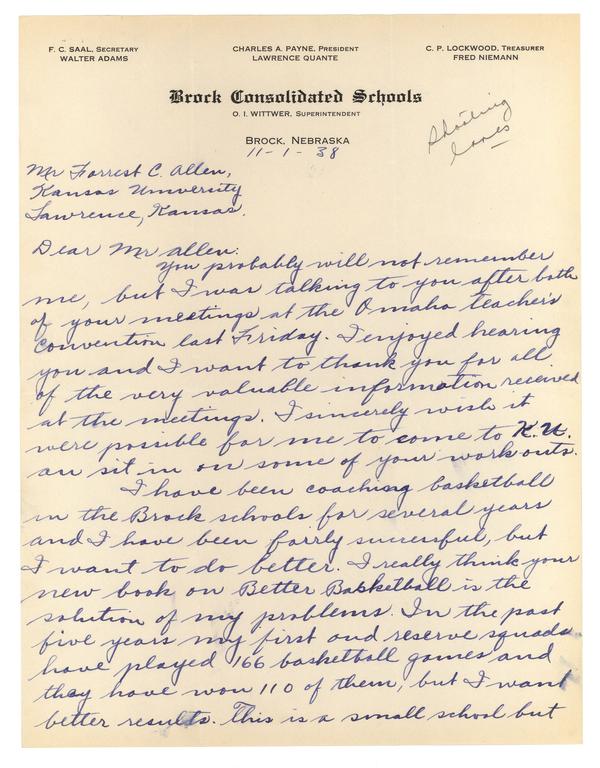 F. C. SAAL, SECRETARY
WALTER ADAMS
CHARLES A. PAYNE, PRESIDENT
LAWRENCE QUANTE
C. P. LOCKWOOD, TREASURER
FRED NIEMANN
Brock Consolidated Schools
O. I. WITTWER, SUPERINTENDENT
BROCK, NEBRASKA
11-1-38
Shooting
lanes
Mr Forrest C. Allen,
Kansas University
Lawrence, Kansas.
Dear Mr Allen:
You probably will not remember
me, but I was talking to you after both
of your meetings at the Omaha teacher's
Convention last Friday. I enjoyed hearing
you and I want to thank you for all
of the very valuable information received
at the meetings. I sincerely wish it
were possible for me to come to K.U.
an sit in on some of your workouts.
I have been coaching basketball
in the Brock schools for several years
and I have been fairly successful, but
I want to do better. I really think your
new book on Better Basketball is the
solution of my problems. In the past
five years my first and reserve squads
have played 166 basketball games and
they have won 110 of them, but I want
better results. This is a small school but